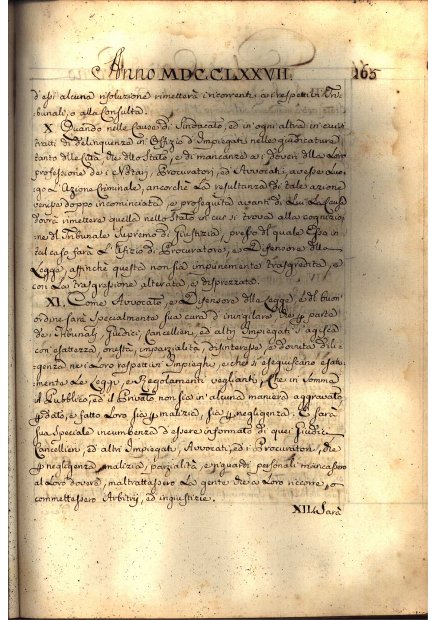 Anno MDCCLXXVII. 265
d'essi alcuna risoluzione rimetterà i ricorrenti a i rispettivi Tri-
bunale, o alla Consulta.
X. Quando nelle Cause di Sindacato, ed in ogni altra in cui si
tratti di delinquenza in Offizio d'Impiegati nelle giudicature
tanto della Città, che dello Stato, e di mancanza ai doveri della Loro
professione de i Notari, Procuratori, ed Avvocati, avesse Luo-
go L'Azione Criminale, ancorchè La resultanza di tale azione
venisse doppo incominciata, e proseguita avanti di Lui La Causa
dovrà rimettere quella nello stato in cui si trova alla cognizio-
ne del Tribunale Supremo di Giustizia, presso di quale Esso in
tal caso farà L'Ufizio di Procuratore, e Difensore della
Legge, affinchè questa non sia impunemente trasgredita, e
con La trasgressione alterata, e disprezzata.
XI. Come Avvocato, e Difensore della Legge, e del buon
ordine sarà specialmente sua cura d'invigilare che per parte
de i Tribunali, Giudici, Cancellieri, ed altri Impiegati s'agisca
con esattezza, onestà, imparzialità, disinteresse, e dovuta dili-
genza ne i Loro respettivi Impieghi, e che si eseguiscano esatta-
mente Le Leggi, e Regolamenti veglianti, Che in Somma
il Pubblico, ed il Privato non sia in alcuna maniera aggravato,
e fatto Loro sia per malizia, sia per negligenza. E sarà
sua speciale incumbenza d'essere informato di quei Giudici,
Cancellieri, ed altri Impiegati, Avvocati, ed i Procuratori, che
per negligenza, malizia, parzialità, e riguardi personali mancassero
al Loro dovere, maltrattassero La gente che a Loro ricorre, o
commettessero Arbitrij, ed ingiustizie.
XII. Sarà